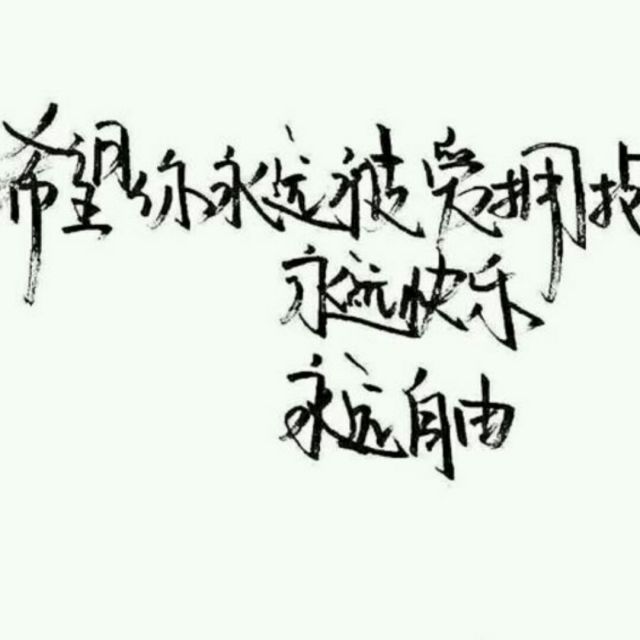 希望你永远被爱拥
永远快乐
永远自由